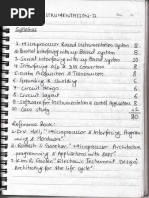 INSTRUMENTATION-II
Syllabus
1. Microprocessor Based Instrumentation System 8
2. Parallel interfacing with µp Based system 8
3. Serial interfacing with µp Based system 8
4. Interfacing A/D & D/A Converters 8
5. Data Acquisition & Transmission 8
6. Grounding & Shielding 8
7. Circuit Design 8
8. Circuit Layout 8
9. Software for Instrumentation & Control Application 8
10. Case study
80
Reference Book:
1. D.V. Hall, "Microprocessor & Interfacing, Programming & Hardware"
2. Ramesh S. Gaonkar, "Microprocessor Architecture programming & Applications with 8085"
3. Kim R. Fowler "Electronic Instrument Design Architecting for the life cycle"